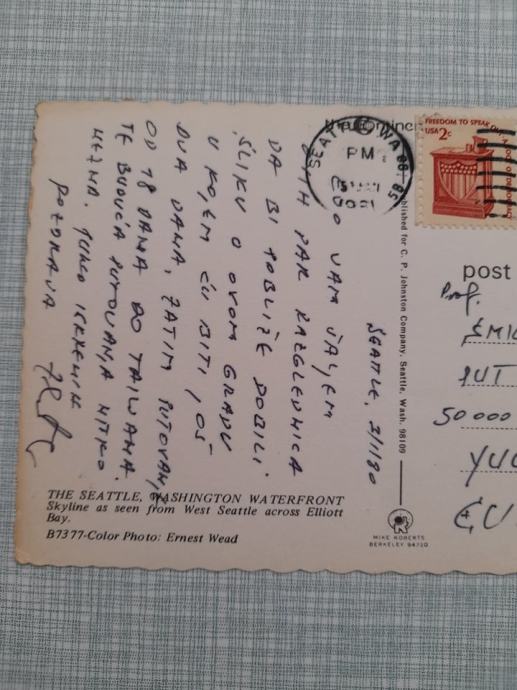 SEATTLE, 3/1/80
VAM ŠALJEM
PAR RAZGLEDNICA
DA BI POBLIŽE DOBILI
SLIKU O OVOM GRADU
U KOJEM ĆU BITI JOŠ
DVA DANA, ZATIM PUTOVANJE
OD 18 DANA DO TAIWANA.
TE BUDUĆA PUTOVANJA NITKO
NEZNA. PUNO ISKRENIH
POZDRAVA
THE SEATTLE, WASHINGTON WATERFRONT
Skyline as seen from West Seattle across Elliott
Bay.
B7377-Color Photo: Ernest Wead
Published for C. P. Johnston Company, Seattle, Wash. 98109
MIKE ROBERTS
BERKELEY 94710
SEATTLE WA
PM
FREEDOM TO SPEAK OUT
USA 2c
post
Prof.
EMI
PUT
50000
YU